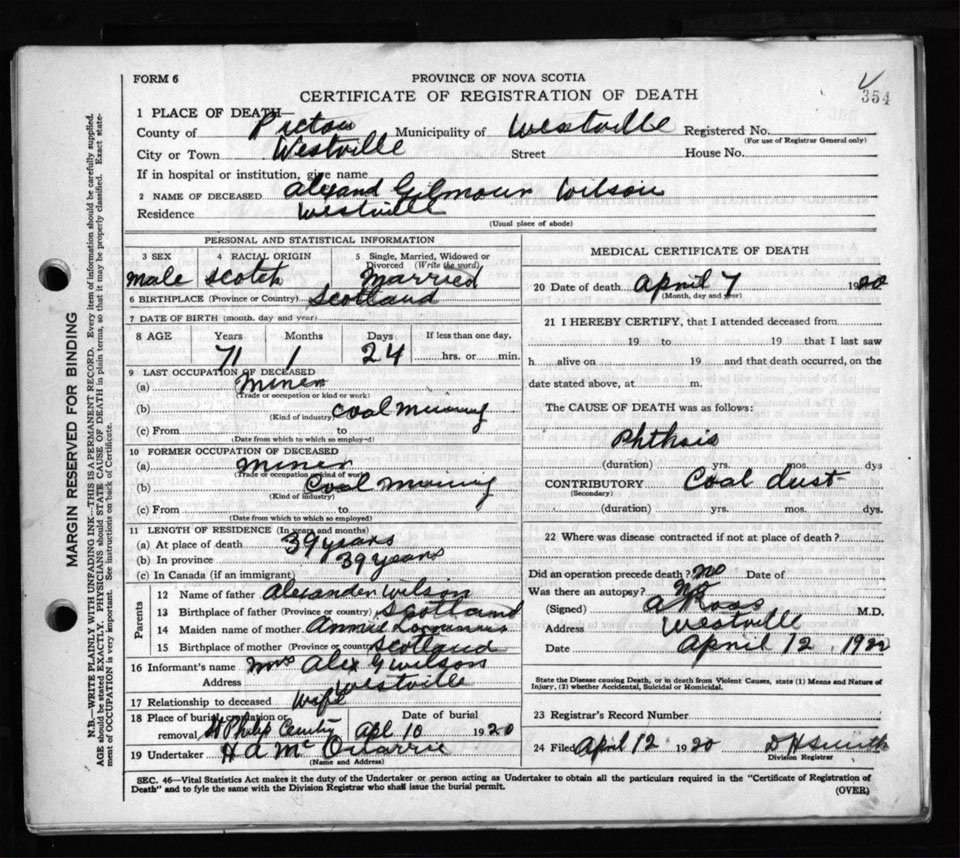 354
FORM 6
PROVINCE OF NOVA SCOTIA
CERTIFICATE OF REGISTRATION OF DEATH
1 PLACE OF DEATH—
County of Pictou Municipality of Westville Registered No.
(For use of Registrar General only)
City or Town Westville Street House No.
If in hospital or institution, give name
2 NAME OF DECEASED Alexand Gilmour Wilson
Residence Westville
(Usual place of abode)
PERSONAL AND STATISTICAL INFORMATION
3 SEX 4 RACIAL ORIGIN 5 Single, Married, Widowed or Divorced (Write the word)
male scotch Married
6 BIRTHPLACE (Province or Country) Scotland
7 DATE OF BIRTH (month, day and year)
8 AGE Years Months Days If less than one day,
71 1 24 hrs. or min.
9 LAST OCCUPATION OF DECEASED
(a) Miner
(Trade or occupation or kind or work)
(b) Coal mining
(Kind of industry)
(c) From to
(Date from which to which so employ-d)
10 FORMER OCCUPATION OF DECEASED
(a) miner
(Trade or occupation or kind of work)
(b) Coal Mining
(Kind of industry)
(c) From to
(Date from which to which so employed)
11 LENGTH OF RESIDENCE (In years and months)
(a) At place of death 39 years
(b) In province 39 years
(c) In Canada (if an immigrant)
Parents
12 Name of father Alexander Wilson
13 Birthplace of father (Province or country) Scotland
14 Maiden name of mother Annnie
15 Birthplace of mother (Province or country) Scotland
16 Informant's name Mrs Alex G Wilson
Address Westville
17 Relationship to deceased Wife
18 Place of burial, cremation or removal, St Philip Date of burial Apl 10 1920
19 Undertaker H A Mc
(Name and Address)
MEDICAL CERTIFICATE OF DEATH
20 Date of death April 7 1920
(Month, day and year)
21 I HEREBY CERTIFY, that I attended deceased from
19 to 19 that I last saw
h alive on 19 and that death occurred, on the
date stated above, at m.
The CAUSE OF DEATH was as follows:
Phthsis
(duration) yrs. mos. dys
CONTRIBUTORY Coal dust
(Secondary)
(duration) yrs. mos. dys.
22 Where was disease contracted if not at place of death?
Did an operation precede death? no Date of
Was there an autopsy? No
(Signed) A Ross M.D.
Address Westville
Date April 12 1920
State the Disease causing Death, or in death from Violent Causes, state (1) Means and Nature of
Injury, (2) whether Accidental, Suicidal or Homicidal.
23 Registrar's Record Number
24 Filed April 12 1920 D H Smith
Division Registrar
SEC. 46—Vital Statistics Act makes it the duty of the Undertaker or person acting as Undertaker to obtain all the particulars required in the "Certificate of Registration of
Death" and to fyle the same with the Division Registrar who shall issue the burial permit.
(OVER)
MARGIN RESERVED FOR BINDING
N.B.—WRITE PLAINLY WITH UNFADING INK—THIS IS A PERMANENT RECORD. Every item of information should be carefully supplied.
AGE should be stated EXACTLY. PHYSICIANS should STATE CAUSE OF DEATH in plain terms, so that it may be properly classified. Exact state-
ment of OCCUPATION is very important. See instructions on back of Certificate.